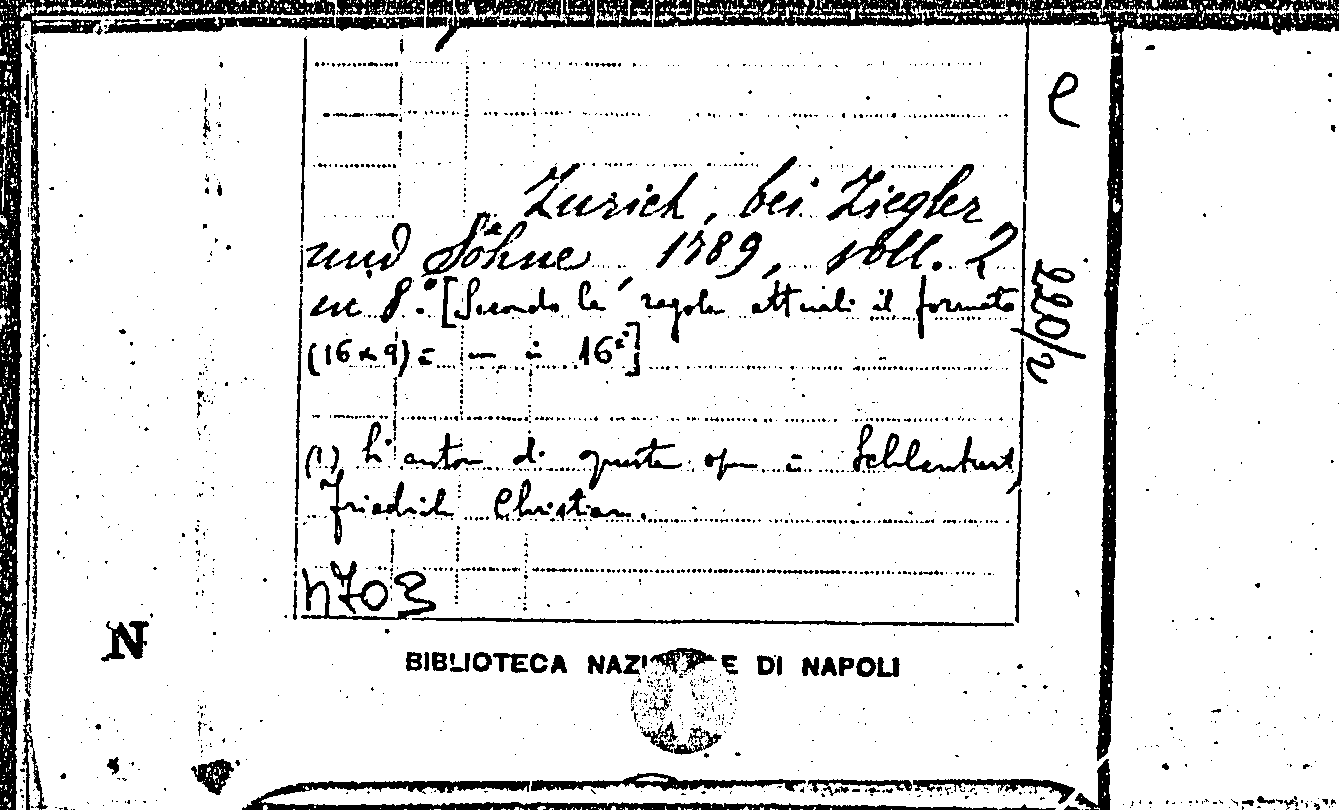 e
Zurich, bei Ziegler
und Söhne 1789, voll. 2
in 8.° [Secondo le regole attuali il formato
220/2
(16 x 9) è in 16°]
(1) L'autore di questa opera è
Friedrich Christian.
4703
N
BIBLIOTECA NAZI E DI NAPOLI